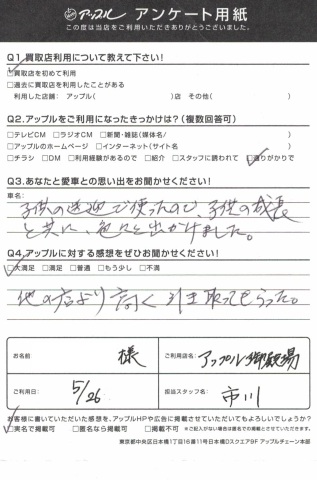 アップル アンケート用紙
この度は当店をご利用いただきありがとうございました。
Q1.買取店利用について教えて下さい!
□買取店を初めて利用
□過去に買取店を利用したことがある
利用した店舗: アップル( )店 その他( )
Q2.アップルをご利用になったきっかけは?(複数回答可)
□テレビCM □ラジオCM □新聞・雑誌(媒体名/ )
□アップルのホームページ □インターネット(サイト名 )
□チラシ □DM □利用経験があるので □紹介 □スタッフに誘われて □通りがかりで
Q3.あなたと愛車との思い出をお聞かせください!
車名:
子供の送迎で使ったので、子供の成長
と共に、色々と出かけました。
Q4.アップルに対する感想をぜひお聞かせください!
□大満足 □満足 □普通 □もう少し □不満
他の店より高く引き取ってもらった。
お名前 様 ご利用店名 アップル御殿場
ご利用日 5/26 担当スタッフ名 市川
お客様に書いていただいた感想を、アップルHPや広告に掲載させていただいてもよろしいでしょうか?
□実名で掲載可 □匿名なら掲載可 □掲載不可 ※ご記入がない場合は匿名での掲載とさせていただきます。
東京都中央区日本橋1丁目16番11号日本橋Dスクエア9F アップルチェーン本部